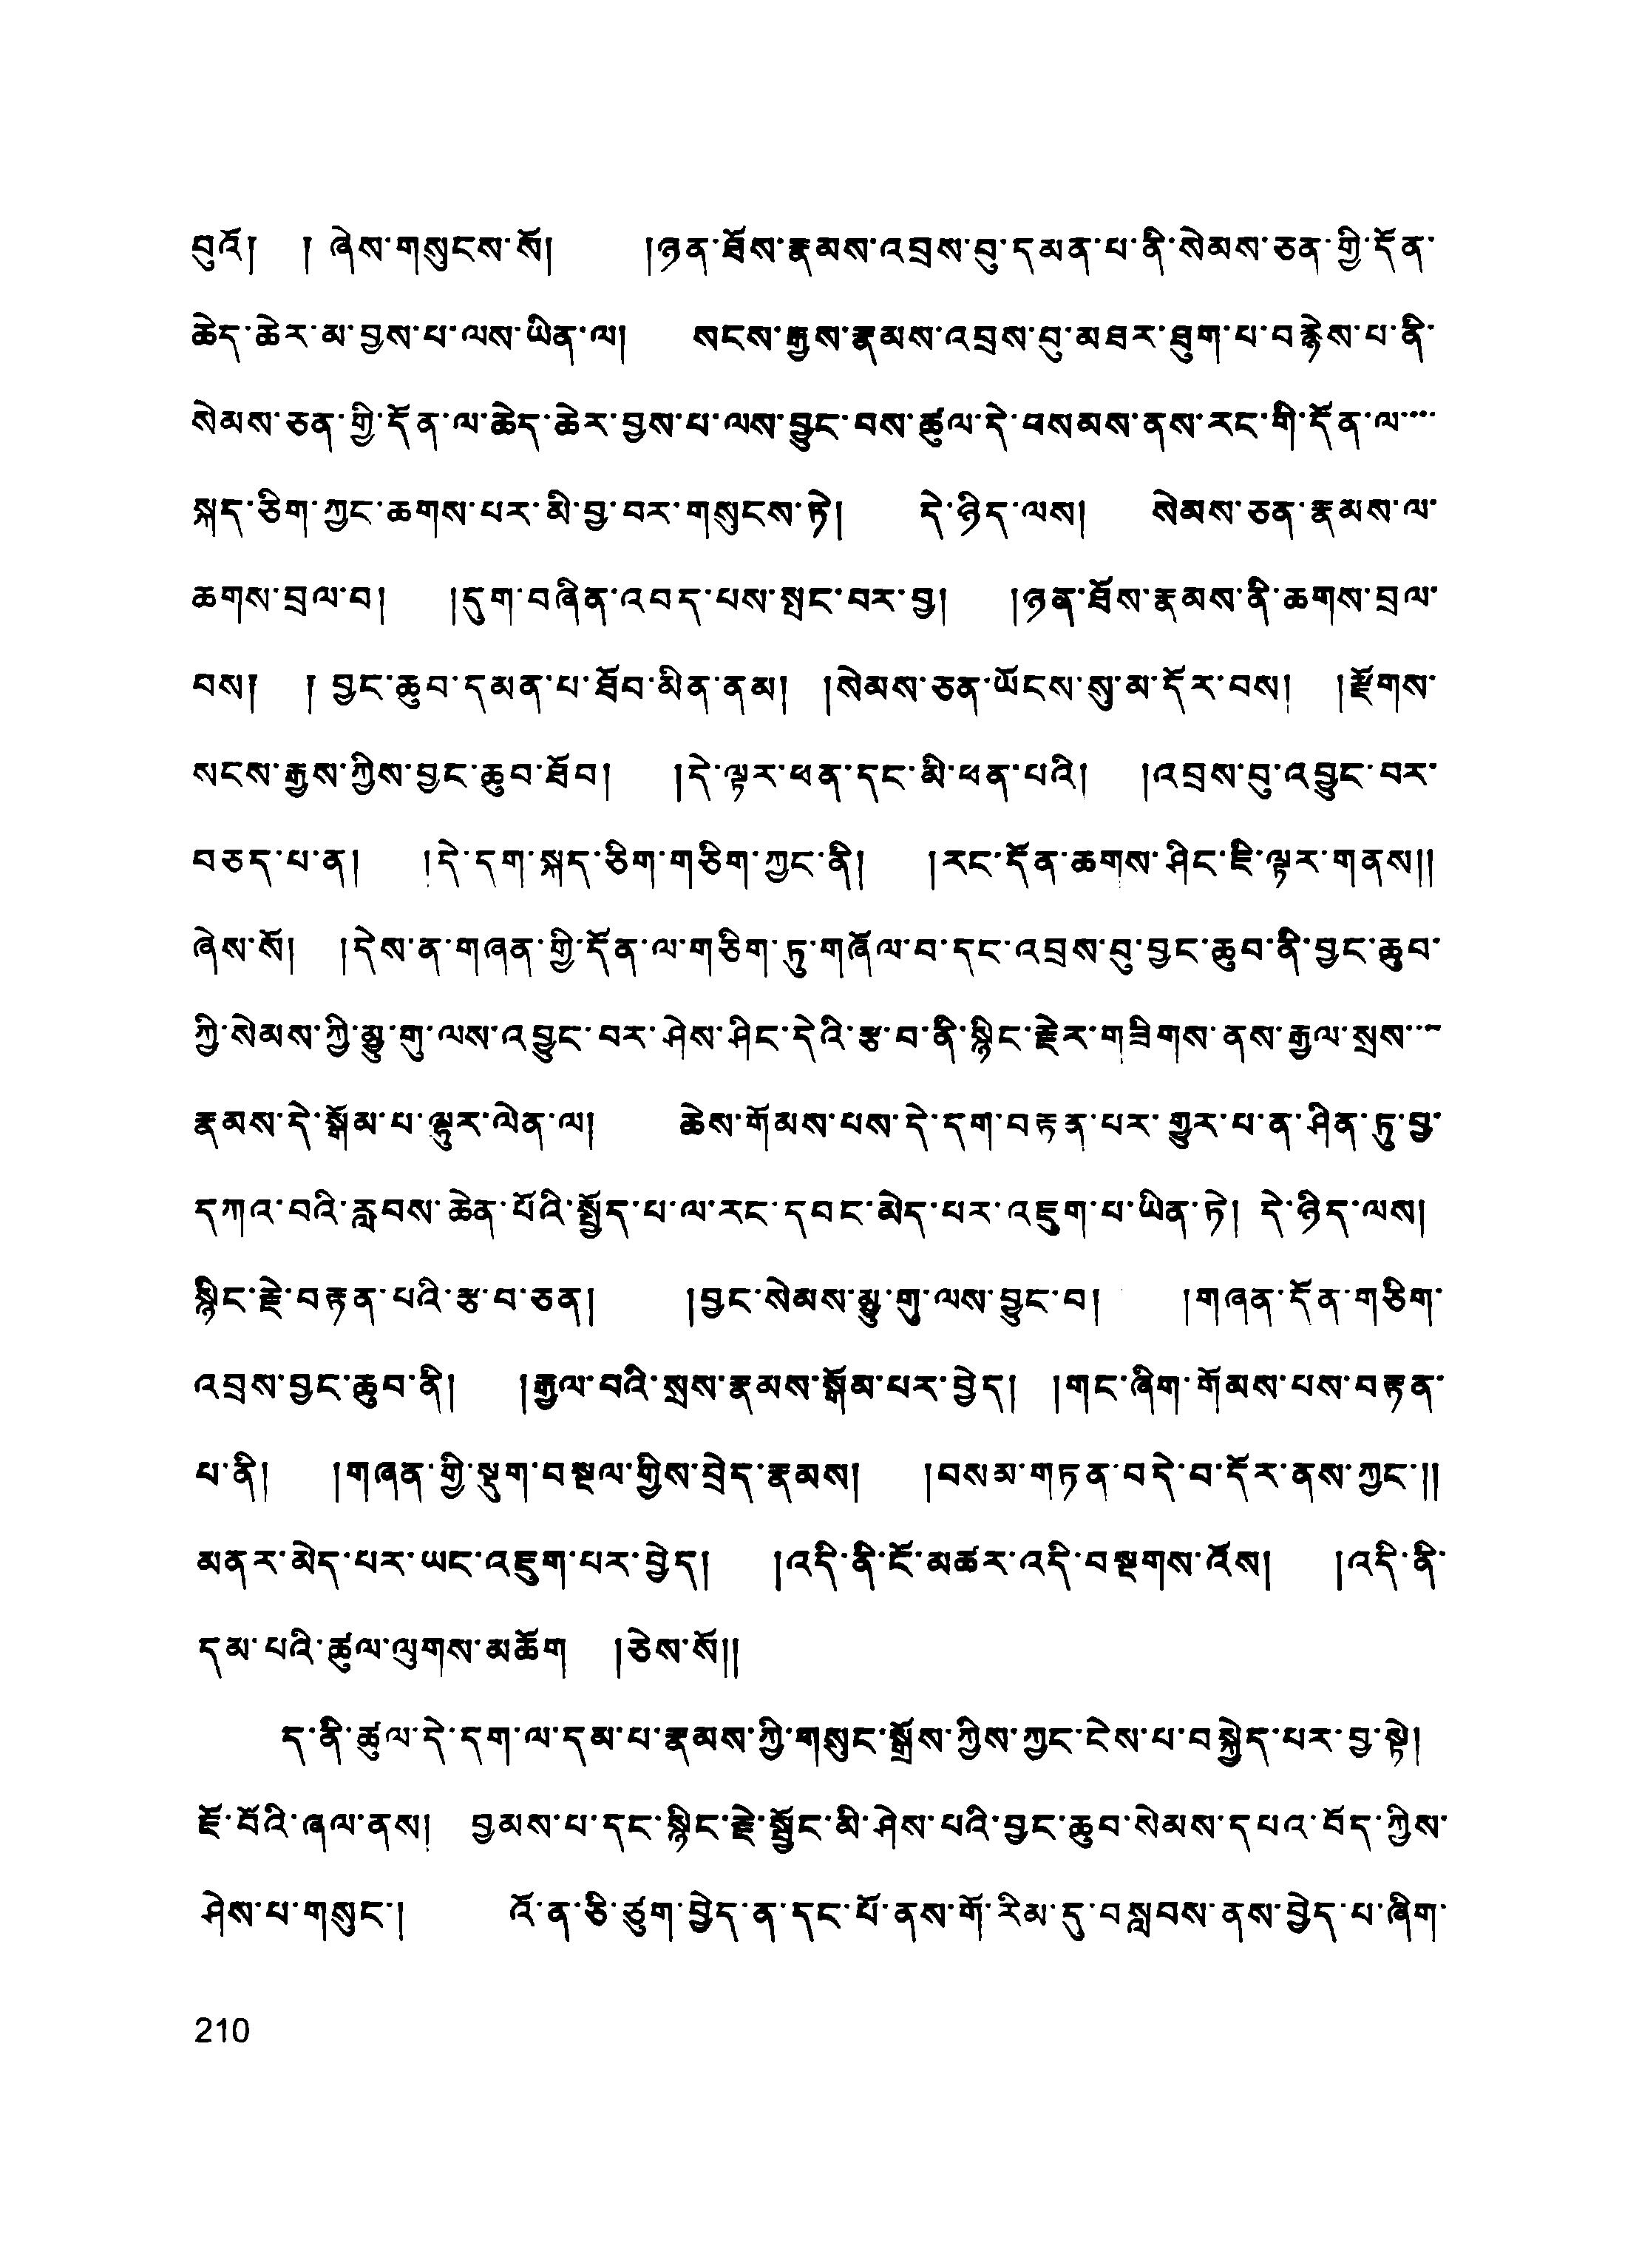 བུའོ། །ཞེས་གསུངས་སོ། །ཉན་ཐོས་རྣམས་འབྲས་བུ་དམན་པ་ནི་སེམས་ཅན་གྱི་དོན་
ཆེད་ཆེར་མ་བྱས་པ་ལས་ཡིན་ལ། སངས་རྒྱས་རྣམས་འབྲས་བུ་མཐར་ཐུག་པ་བརྙེས་པ་ནི་
སེམས་ཅན་གྱི་དོན་ལ་ཆེད་ཆེར་བྱས་པ་ལས་བྱུང་བས་ཚུལ་དེ་བསམས་ནས་རང་གི་དོན་ལ་་་་
སྐད་ཅིག་ཀྱང་ཆགས་པར་མི་བྱ་བར་གསུངས་ཏེ། དེ་ཉིད་ལས། སེམས་ཅན་རྣམས་ལ་
ཆགས་བྲལ་བ། །དུག་བཞིན་འབད་པས་སྤང་བར་བྱ། །ཉན་ཐོས་རྣམས་ནི་ཆགས་བྲལ་
བས། །བྱང་ཆུབ་དམན་པ་ཐོབ་མིན་ནམ། །སེམས་ཅན་ཡོངས་སུ་མ་དོར་བས། །རྫོགས་
སངས་རྒྱས་ཀྱིས་བྱང་ཆུབ་ཐོབ། །དེ་ལྟར་ཕན་དང་མི་ཕན་པའི། །འབྲས་བུ་འབྱུང་བར་
བཅད་པ་ན། །དེ་དག་སྐད་ཅིག་གཅིག་ཀྱང་ནི། །རང་དོན་ཆགས་ཤིང་ཇི་ལྟར་གནས།།
ཞེས་སོ། །དེས་ན་གཞན་གྱི་དོན་ལ་གཅིག་ཏུ་གཞོལ་བ་དང་འབྲས་བུ་བྱང་ཆུབ་ནི་བྱང་ཆུབ་
ཀྱི་སེམས་ཀྱི་མྱུ་གུ་ལས་འབྱུང་བར་ཤེས་ཤིང་དེའི་རྩ་བ་ནི་སྙིང་རྗེར་གཟིགས་ནས་རྒྱལ་སྲས་་་་
རྣམས་དེ་སྒོམ་པ་ལྷུར་ལེན་ལ། ཆེས་གོམས་པས་དེ་དག་བརྟན་པར་གྱུར་པ་ན་ཤིན་ཏུ་བྱ་
དཀའ་བའི་རླབས་ཆེན་པོའི་སྤྱོད་པ་ལ་རང་དབང་མེད་པར་འཇུག་པ་ཡིན་ཏེ། དེ་ཉིད་ལས།
སྙིང་རྗེ་བརྟན་པའི་རྩ་བ་ཅན། །བྱང་སེམས་མྱུ་གུ་ལས་བྱུང་བ། །གཞན་དོན་གཅིག་
འབྲས་བྱང་ཆུབ་ནི། །རྒྱལ་བའི་སྲས་རྣམས་སྒོམ་པར་བྱེད། །གང་ཞིག་གོམས་པས་བརྟན་
པ་ནི། །གཞན་གྱི་སྡུག་བསྔལ་གྱིས་བྲེད་རྣམས། །བསམ་གཏན་བདེ་བ་དོར་ནས་ཀྱང་།།
མནར་མེད་པར་ཡང་འཇུག་པར་བྱེད། །འདི་ནི་ངོ་མཚར་འདི་བསྔགས་འོས། །འདི་ནི་
དམ་པའི་ཚུལ་ལུགས་མཆོག །ཅེས་སོ།།
ད་ནི་ཚུལ་དེ་དག་ལ་དམ་པ་རྣམས་ཀྱི་གསུང་སྒྲོས་ཀྱིས་ཀྱང་ངེས་པ་བསྐྱེད་པར་བྱ་སྟེ།
ཇོ་བོའི་ཞལ་ནས། བྱམས་པ་དང་སྙིང་རྗེ་སྦྱོང་མི་ཤེས་པའི་བྱང་ཆུབ་སེམས་དཔའ་བོད་ཀྱིས་
ཤེས་པ་གསུང་། འོ་ན་ཅི་ཙུག་བྱེད་ན་དང་པོ་ནས་གོ་རིམ་དུ་བསླབས་ནས་བྱེད་པ་ཞིག་
210